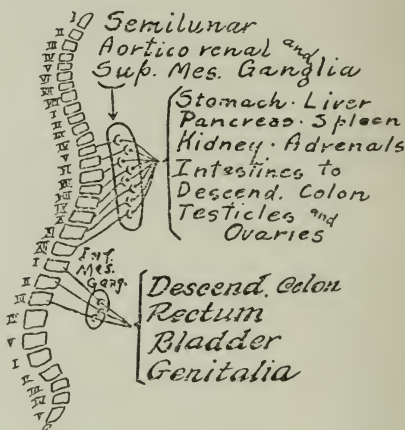 Semilunar
Aortico renal and
Sup. Mes. Ganglia
Stomach. Liver
Pancreas. Spleen
Kidney. Adrenals
Intestines to
Descend. Colon
Testicles and
Ovaries
Inf.
Mes.
Gang.
Descend. Colon
Rectum
Bladder
Genitalia